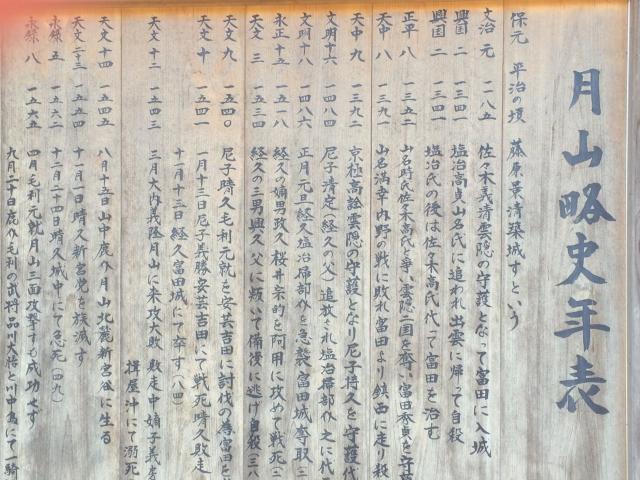 月山略史年表
保元 平治の頃 藤原景清築城すという
文治 元 一一八五 佐々木義清雲隠の守護となって富田に入城
興国 二 一三四一 塩冶高貞山名氏に追われ出雲に帰って自殺
興国 二 一三四一 塩冶氏の後は佐々木高氏代って富田を治む
正平 八 一三五二 山名時氏佐々木高氏と争い雲隠二国を奪い富田秀貞を守護
天中 八 一三九一 山名満幸内野の戦に敗れ富田より鎮西に走り殺
天中 九 一三九二 京極高詮雲隠の守護となり尼子持久を守護代
文明十六 一四八四 尼子清定(経久の父)追放され塩冶掃部介之に代
文明十八 一四八六 正月元旦経久塩冶掃部介を急襲富田城奪取(二
永正十五 一五一八 経久の嫡男政久桜井宗的を阿用に攻めて戦死(二
天文 三 一五三四 経久の三男興久父に叛いて備後に逃げ自殺(三八
天文 九 一五四〇 尼子晴久毛利元就を安芸吉田に討伐の為富田を
天文 十 一五四一 一月十三日尼子義勝安芸吉田にて戦死晴久敗走
十一月十三日経久富田城にて卒す(八四)
天文十二 一五四三 三月大内義隆月山に来攻大敗 敗走中嫡子義
揖屋沖にて溺死
天文十四 一五四五 八月十五日山中鹿介月山北麓新宮谷に生る
天文二三 一五五四 十一月一日晴久新宮党を族滅す
永禄 五 一五六二 十二月二十四日晴久城中にて急死(四九)
永禄 八 一五六五 四月毛利元就月山三面攻撃するも成功せず
九月二十日鹿介毛利の武将品川大将と川中島にて一騎